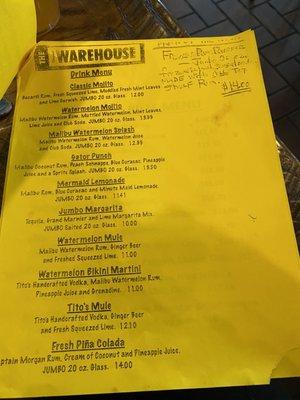 THE WAREHOUSE
Drink Menu
Classic Mojito
Bacardi Rum, Fresh Squeezed Lime, Muddled Fresh Mint Leaves
and Lime Garnish. JUMBO 20 oz. Glass.
Watermelon Mojito
Malibu Watermelon Rum, Muddled Watermelon, Mint Leaves
Lime Juice and Club Soda. JUMBO 20 oz. Glass.
Malibu Watermelon Splash
Malibu Watermelon Rum, Watermelon Juice
and Club Soda. JUMBO 20 oz. Glass.
Gator Punch
Malibu Coconut Rum, Peach Schnapps, Blue Curacao, Pineapple
Juice and a Spritz Splash. JUMBO 20 oz. Glass.
Mermaid Lemonade
Malibu Rum, Blue Curacao and Minute Maid Lemonade.
JUMBO 20 oz. Glass 11.41
Jumbo Margarita
Tequila, Grand Marnier and Lime Margarita Mix.
JUMBO Salted 20 oz. Glass 10.00
Watermelon Mule
Malibu Watermelon Rum, Ginger Beer
and Freshed Squeezed Lime. 11.00
Watermelon Bikini Martini
Tito's Handcrafted Vodka, Malibu Watermelon Rum,
Pineapple Juice and Grenadine. 11.00
Tito's Mule
Tito's Handcrafted Vodka, Ginger Beer
and Fresh Squeezed Lime. 12.10
Fresh Piña Colada
ptain Morgan Rum, Cream of Coconut and Pineapple Juice.
JUMBO 20 oz. Glass. 14.00
$14.00